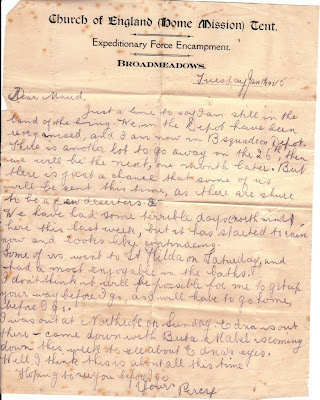 Church of England (Home Mission) Tent.
Expeditionary Force Encampment.
BROADMEADOWS.
Tuesday Jan 19/15
Dear Maud,
Just a line to say I am still in the
land of the living. We in the Depot have been
reorganised, and I am now in B Squadron Depot.
There is another lot to go away on the 26th, then
we will be the next, one month later. But
there is just a chance that some of us
will be sent this time, as there are shure
to be a few deserters.
We have had some terrible days (north winds)
here this last week, but it has started to rain
now and looks like continueing.
Some of us went to St Kilda on Saturday, and
had a most enjoyable in the baths.
I don't think it will be possible for me to get up
your way before I go, as I will have to go home,
before I go.
I was out at Northcote on Sunday. Edna is out
there - came down with Bub. Mabel is coming
down this week to see about Edna's eyes.
Well I think this is about all this time
Hoping to see you before I go
Your Percy